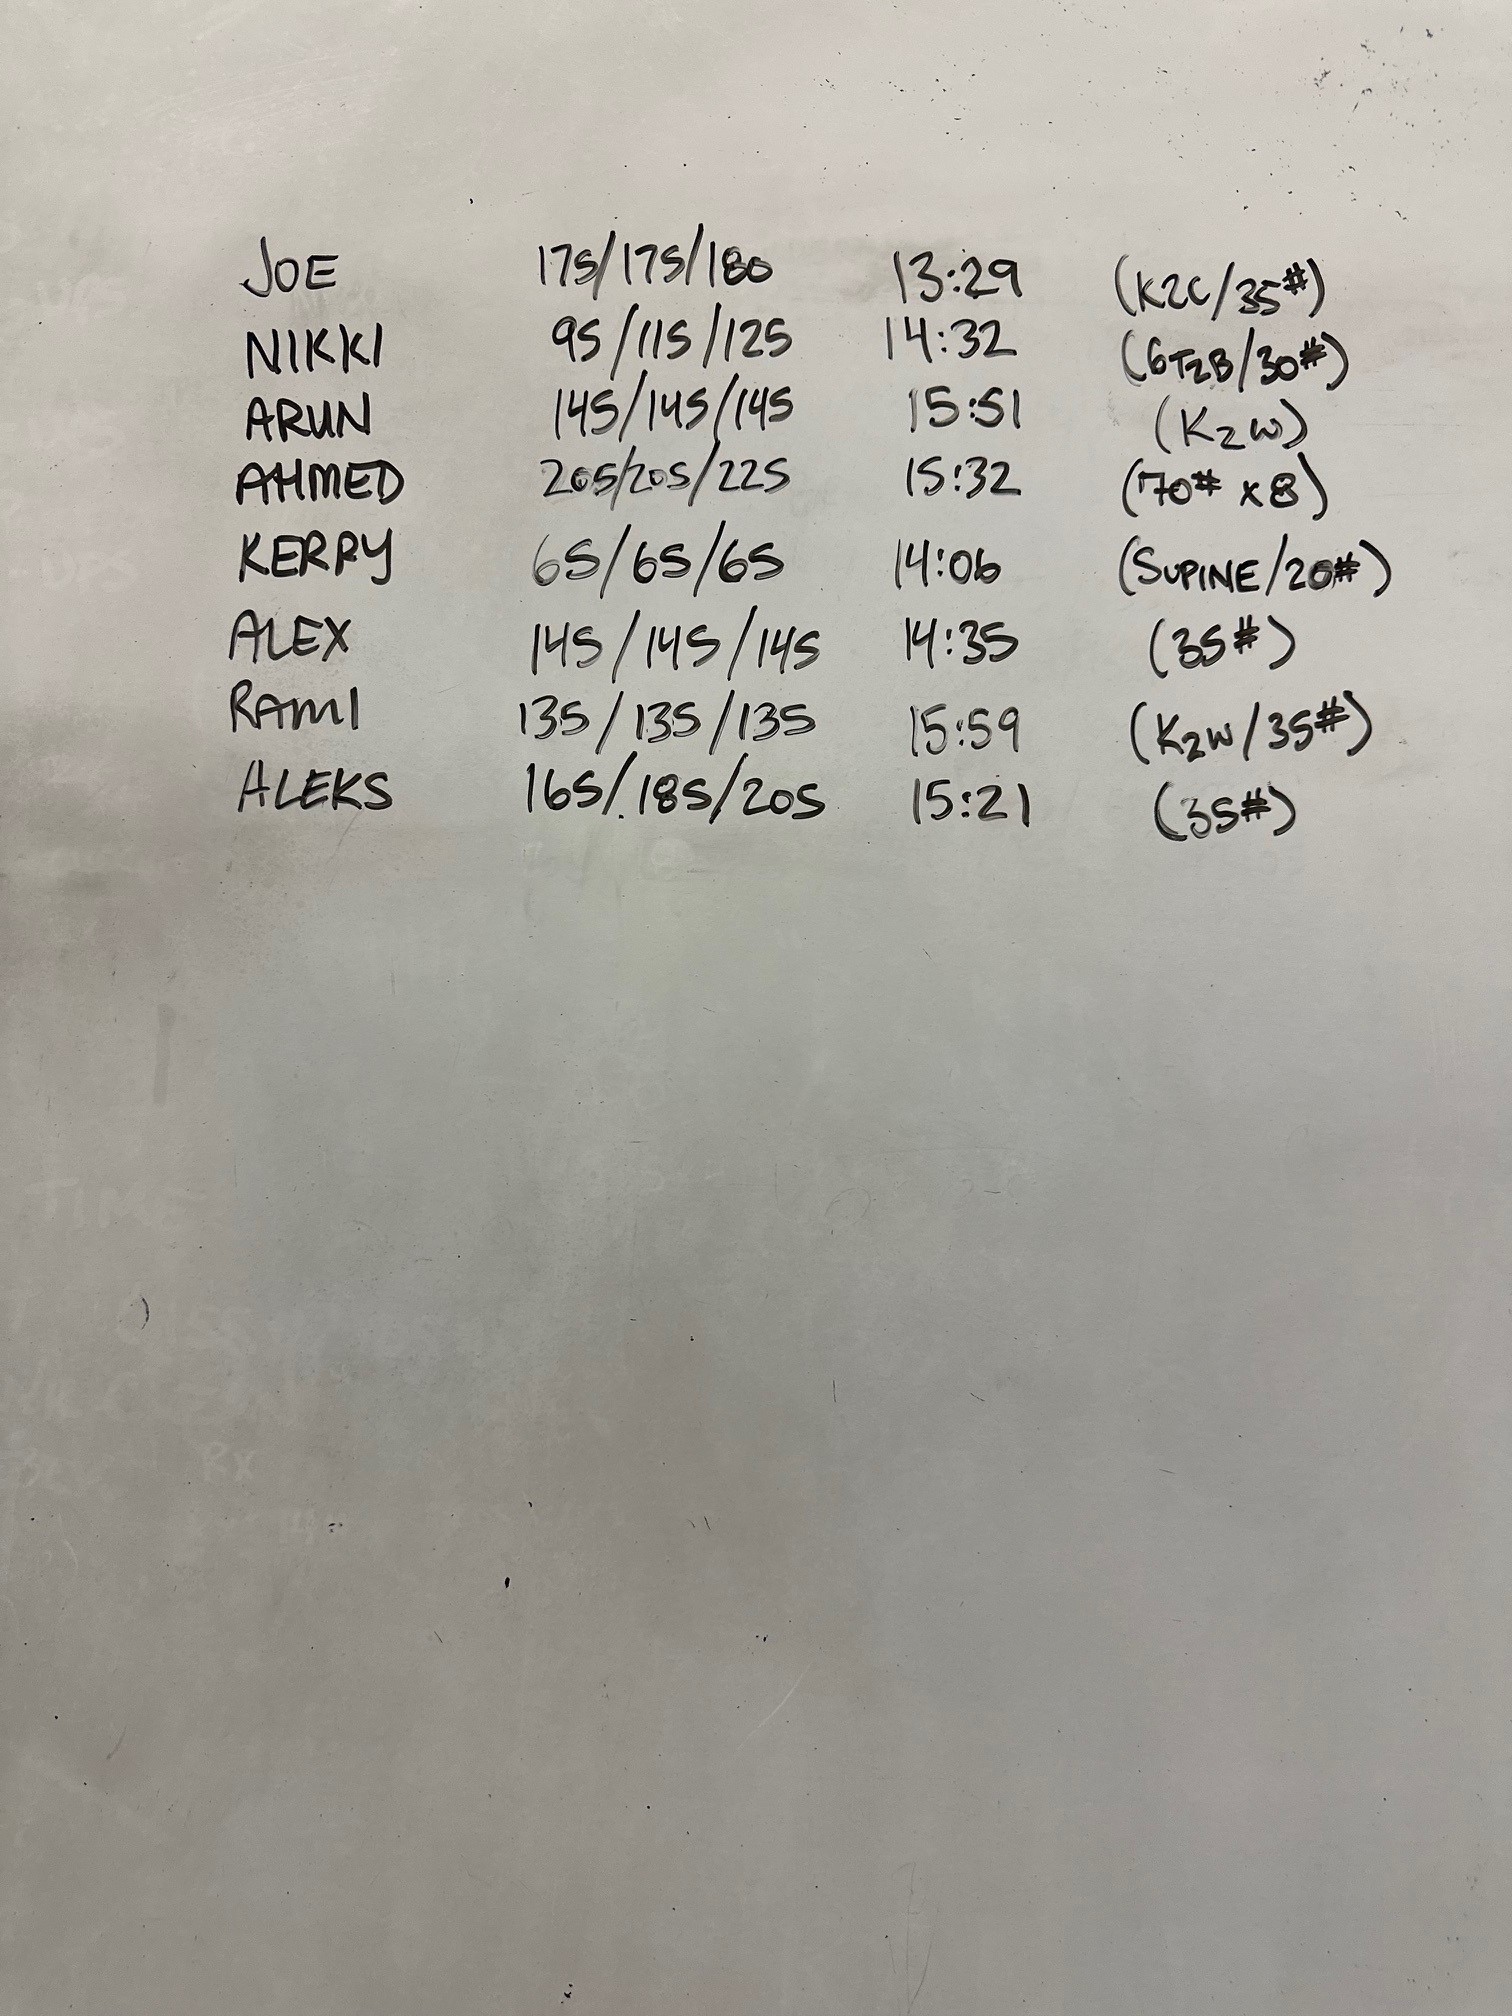 JOE 175/175/180 13:29 (K2C/35#)
NIKKI 95/115/125 14:32 (6T2B/30#)
ARUN 145/145/145 15:51 (K2W)
AHMED 205/205/225 15:32 (70# x8)
KERRY 65/65/65 14:06 (SUPINE/20#)
ALEX 145/145/145 14:35 (35#)
RAMI 135/135/135 15:59 (K2W/35#)
ALEKS 165/185/205 15:21 (35#)
TIME
RX